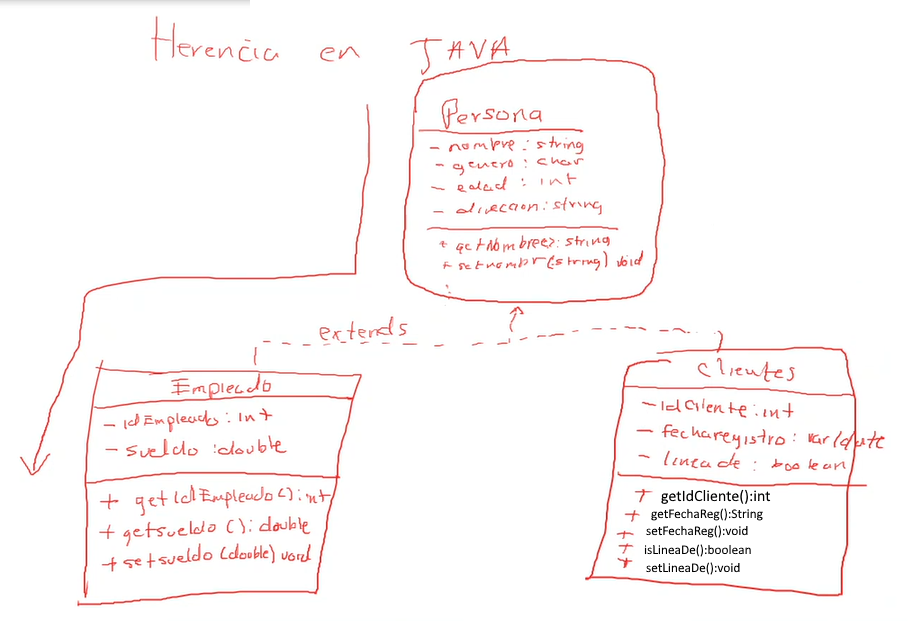 Herencia en JAVA
Persona
- nombre : string
- genero : char
- edad : int
- direccion : string
+ getNombre(): string
+ setnombr(:string) void
:
extends
Empleado
- idEmpleado : int
- sueldo : double
+ getIdEmpleado(): int
+ getsueldo (): double
+ setsueldo (double) void
Clientes
- IdCliente : int
- fecharegistro : var/date
- lineade : boolean
+ getIdCliente():int
+ getFechaReg():String
+ setFechaReg():void
+ isLineaDe():boolean
+ setLineaDe():void